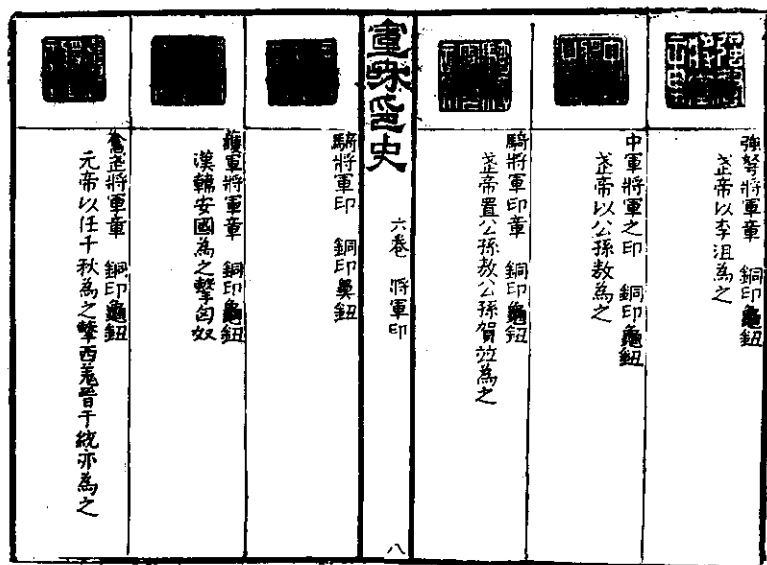 強弩將軍章　銅印龜鈕
武帝以李沮為之
中軍將軍之印　銅印龜鈕
武帝以公孫敖為之
騎將軍印章　銅印龜鈕
武帝置公孫敖公孫賀竝為之
宣和印史
六卷　將軍印
八
騎將軍印　銅印鼻鈕
護軍將軍章　銅印龜鈕
漢韓安國為之擊匈奴
奮武將軍章　銅印龜鈕
元帝以任千秋為之擊西羌晉于統亦為之